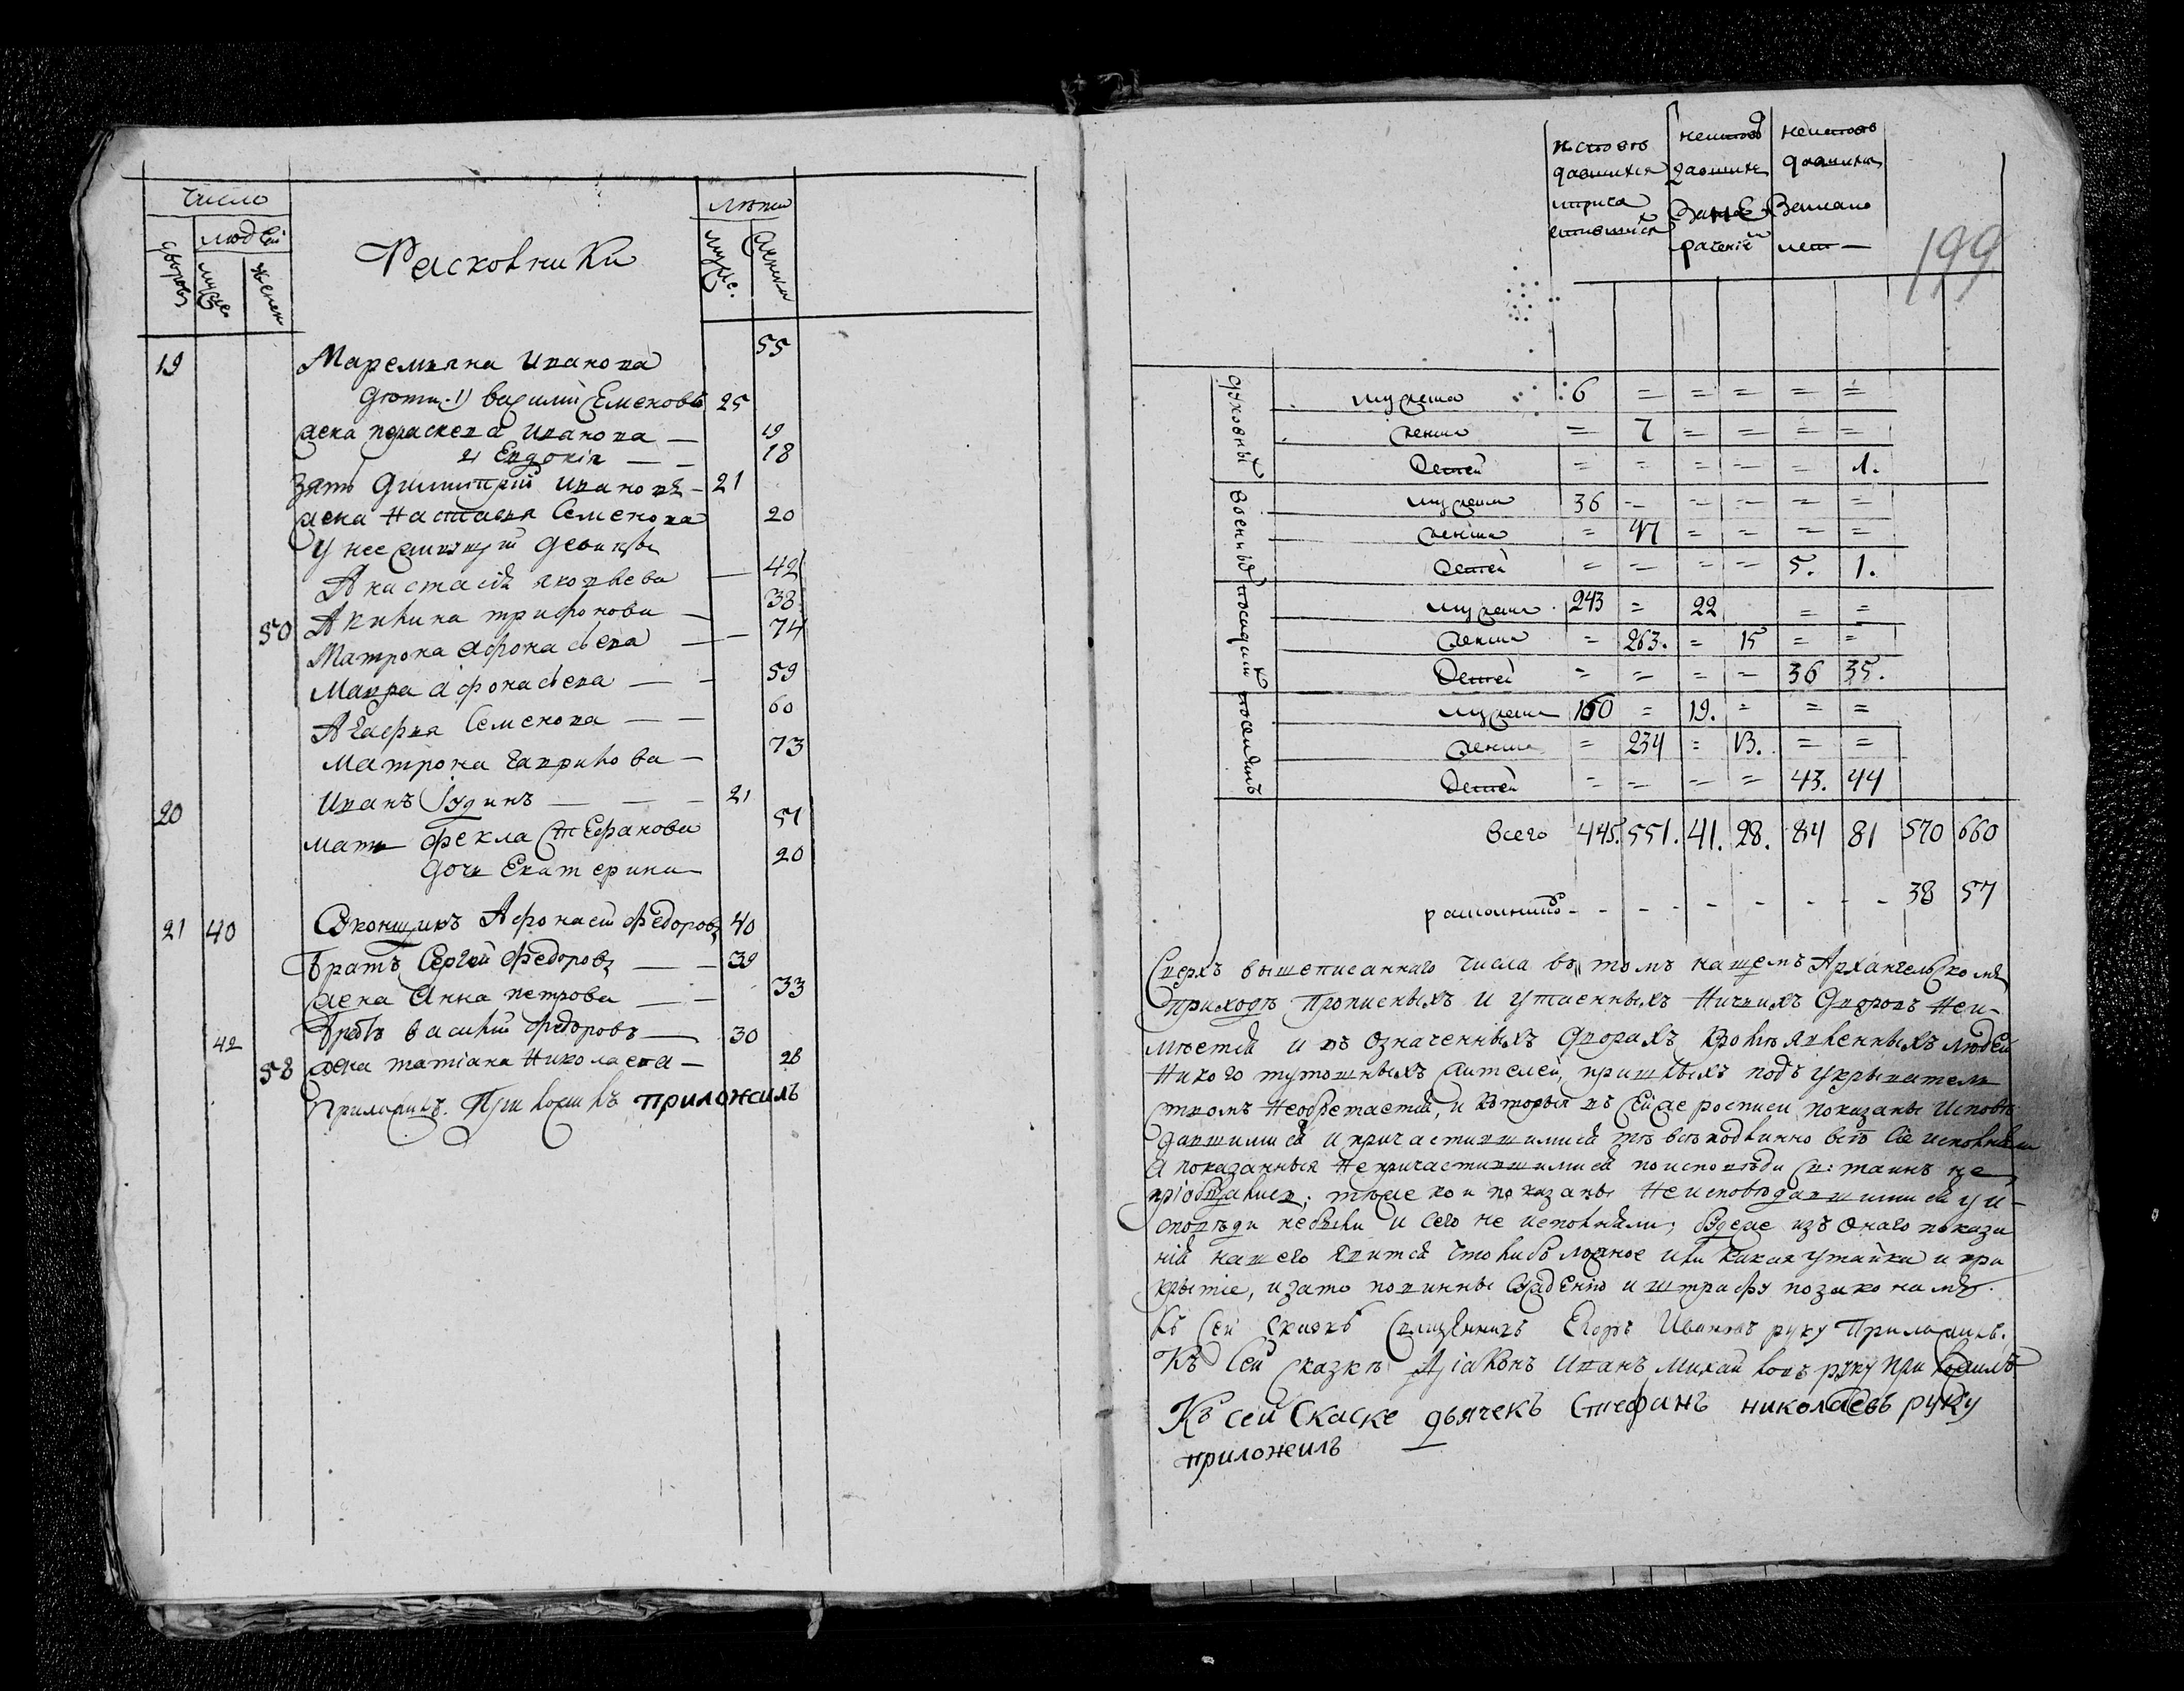 Число
людей
дворовъ
муже.
женск
Расковники
лѣта
муже.
женск
19 Маремъяна Иванова 55
дѣти: 1) василий Семеновъ 25
жена параскева Иванова — 19
2) Евдокiя — — 18
Зять Димитрий Ивановъ — 21
жена Настасья Семенова 20
У нее живущи девицы
Анастасiя яковлева — 42
50 Акилина трифонова — 38
Матрона афонасьева — 74
Мавра афонасьева — — 59
Агафья Семенова — — 60
Матрона гаврилова — 73
20 Иванъ Iудинъ — — — 21
мать фекла Стефанова 51
дочь Екатерина 20
21 40 Афонасей Федоровъ 40
братъ Сергей Федоровъ — — 39
жена Анна петрова — — 33
42 братъ василий федоровъ — 30
58 жена татiана Николаева — 28
Приложилъ. Приложилъ приложилъ
199
исповѣ
давшихся
иприча
стившихся
неиспов
давших
рачениi
неиспов
давших
замало
лет —
духовны
мужеска : 6 = = = = =
женска = 7 = = = =
Детей = = = = = 1.
военных
мужеска 36 = = = = =
женска = 47 = = = =
Детей = = = = 5. 1.
посадских
мужеска 243 = 22 = =
женска = 263. = 15 = =
Детей = = = = 36 35.
поселянъ
мужеска 160 = 19. = = =
женска = 234 = 13. = =
Детей = = = = 43. 44
Всего 445. 551. 41. 28. 84 81 570 660
- - - - - - - 38 57
Сверхъ вышеписаннаго числа въ томъ нашемъ Архангельскомъ
приходѣ прописныхъ и утаенныхъ ничьихъ дворовъ Неи-
мѣется и въ означенныхъ дворахъ кромѣ явленныхъ людей
никого тутошныхъ жителей, пришлыхъ подъ укрывател
ствомъ необретается, и которыя въ Сей же росписи показаны Исповѣ
давшимися и причастившимися тѣ всѣ подлинно всѣ сiе исполнили
а показанныя Непричастившимися по исповѣди св: таинъ не
прiобщались; тѣже кои показаны Неисповѣдавшимися у и-
сповѣди небыли и сего не исполняли; Будеже изъ онаго показа
нiя нашего явится чтолибо ложное или какая утайка и при
крытiе, изато повинны суждению и штрафу позаконамъ.
Къ Сей Скаскѣ Священникъ Егоръ Ивановъ руку Приложилъ.
Къ Сей сказкѣ Дiаконъ Иванъ михайловъ руку приложилъ
Къ сеи Скаске дьячекъ Стефанъ николаевъ руку
приложилъ